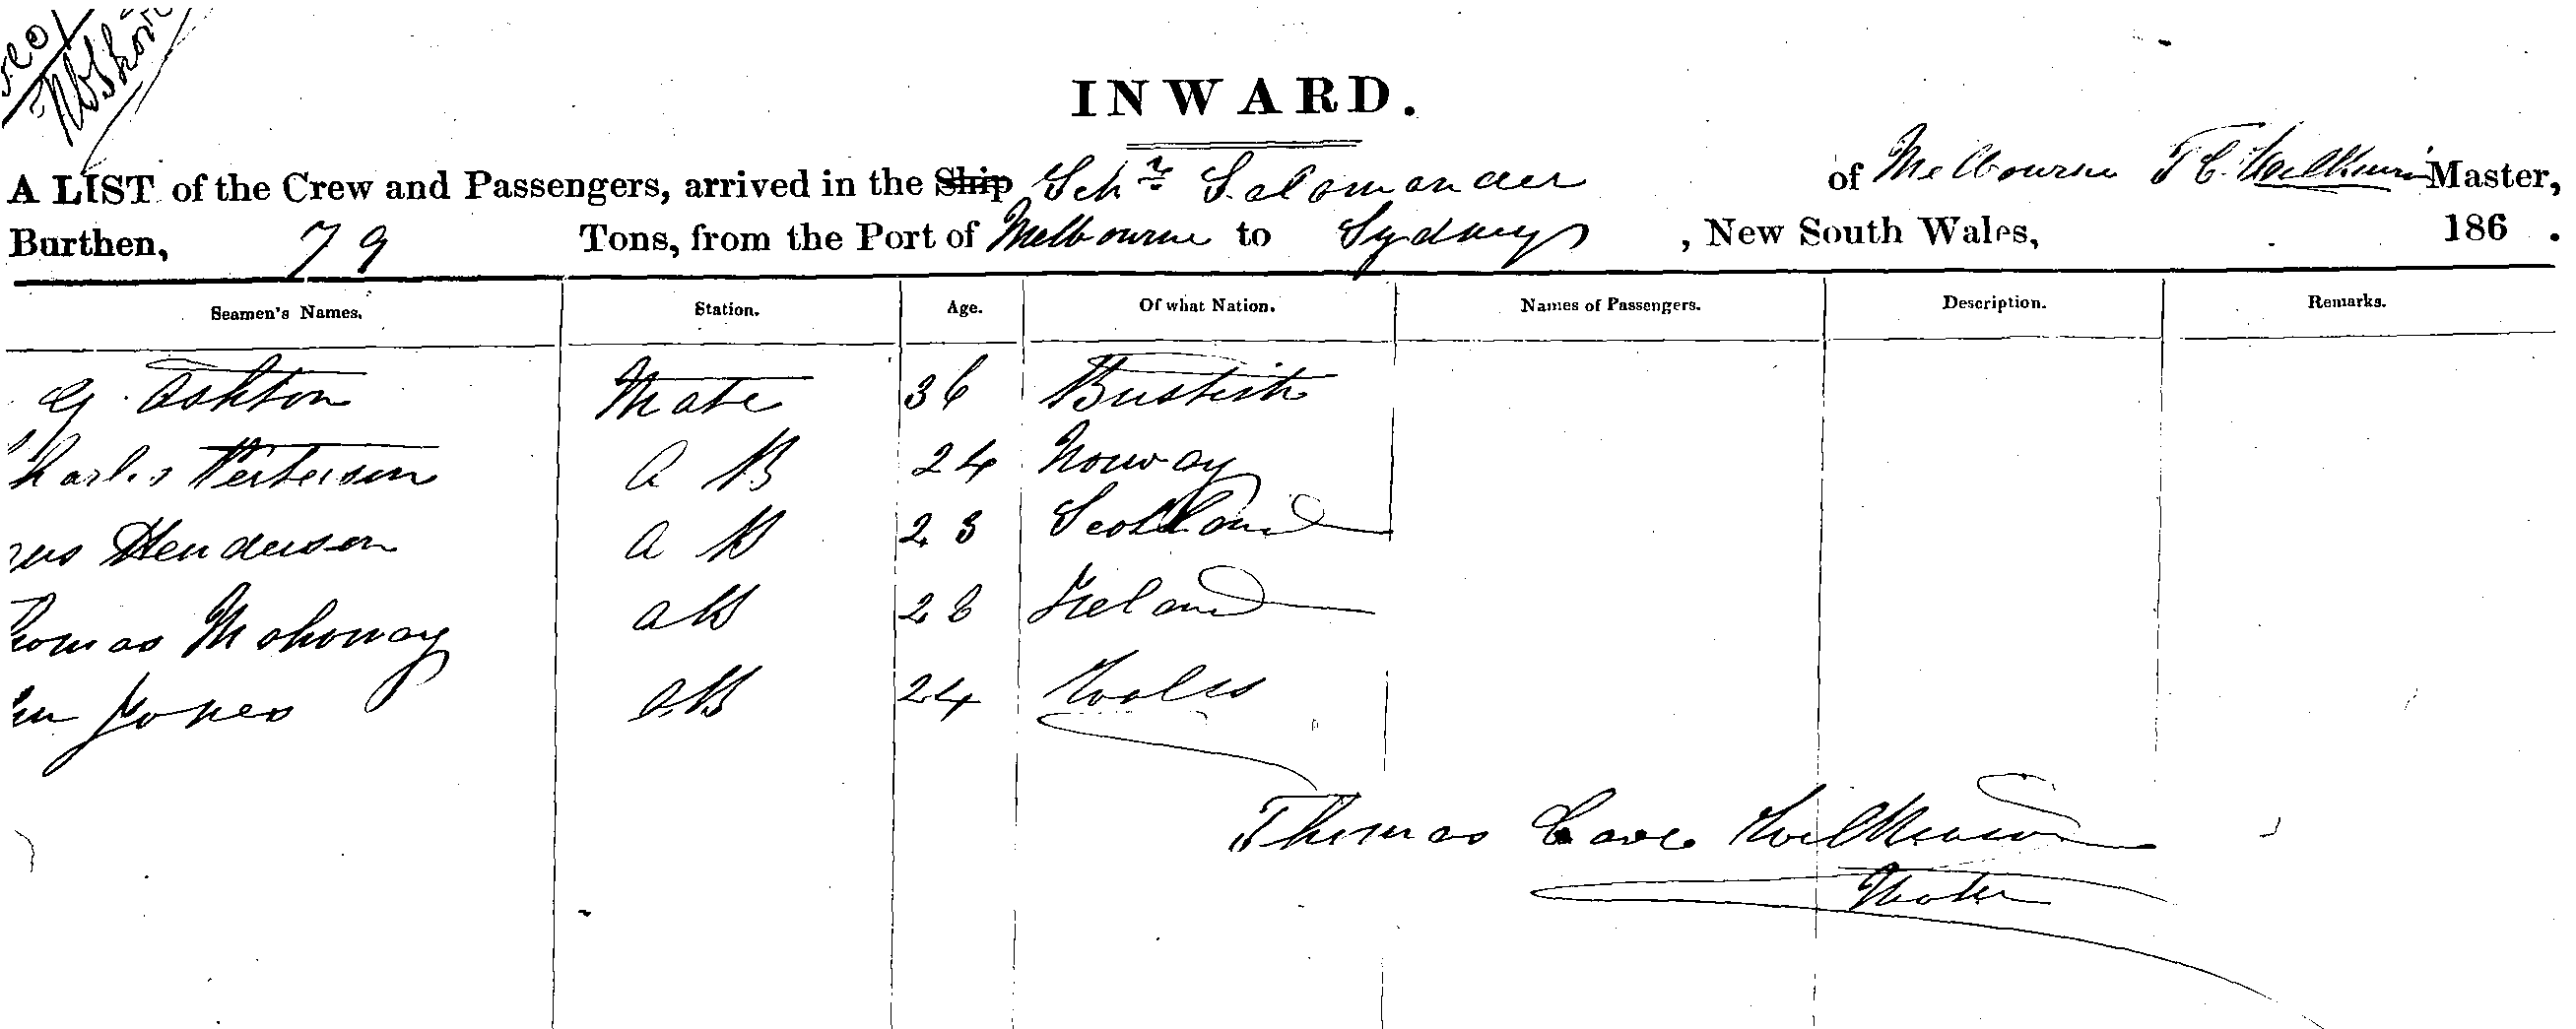 INWARD.
A LIST of the Crew and Passengers, arrived in the Ship Schr Salamander of Melbourne T C. Wilkinson Master,
Burthen, 79 Tons, from the Port of Melbourne to Sydney , New South Wales, 186 .
Seamen's Names. Station. Age. Of what Nation. Names of Passengers. Description. Remarks.
G. Ashton Mate 36 British
Charles Peterson A B 24 Norway
Henderson A B 23 Scotland
Thomas Mahoney AB 28 Ireland
Jones AB 24 Wales
Thomas Cave Wilkinson